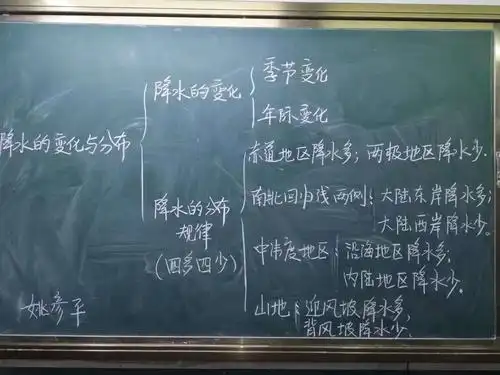 降水的变化与分布
降水的变化
季节变化
年际变化
降水的分布
规律
(四多四少)
赤道地区降水多；两极地区降水少.
南北回归线两侧：大陆东岸降水多；
大陆西岸降水少。
中纬度地区：沿海地区降水多；
内陆地区降水少。
山地：迎风坡降水多，
背风坡降水少.
姚彦平